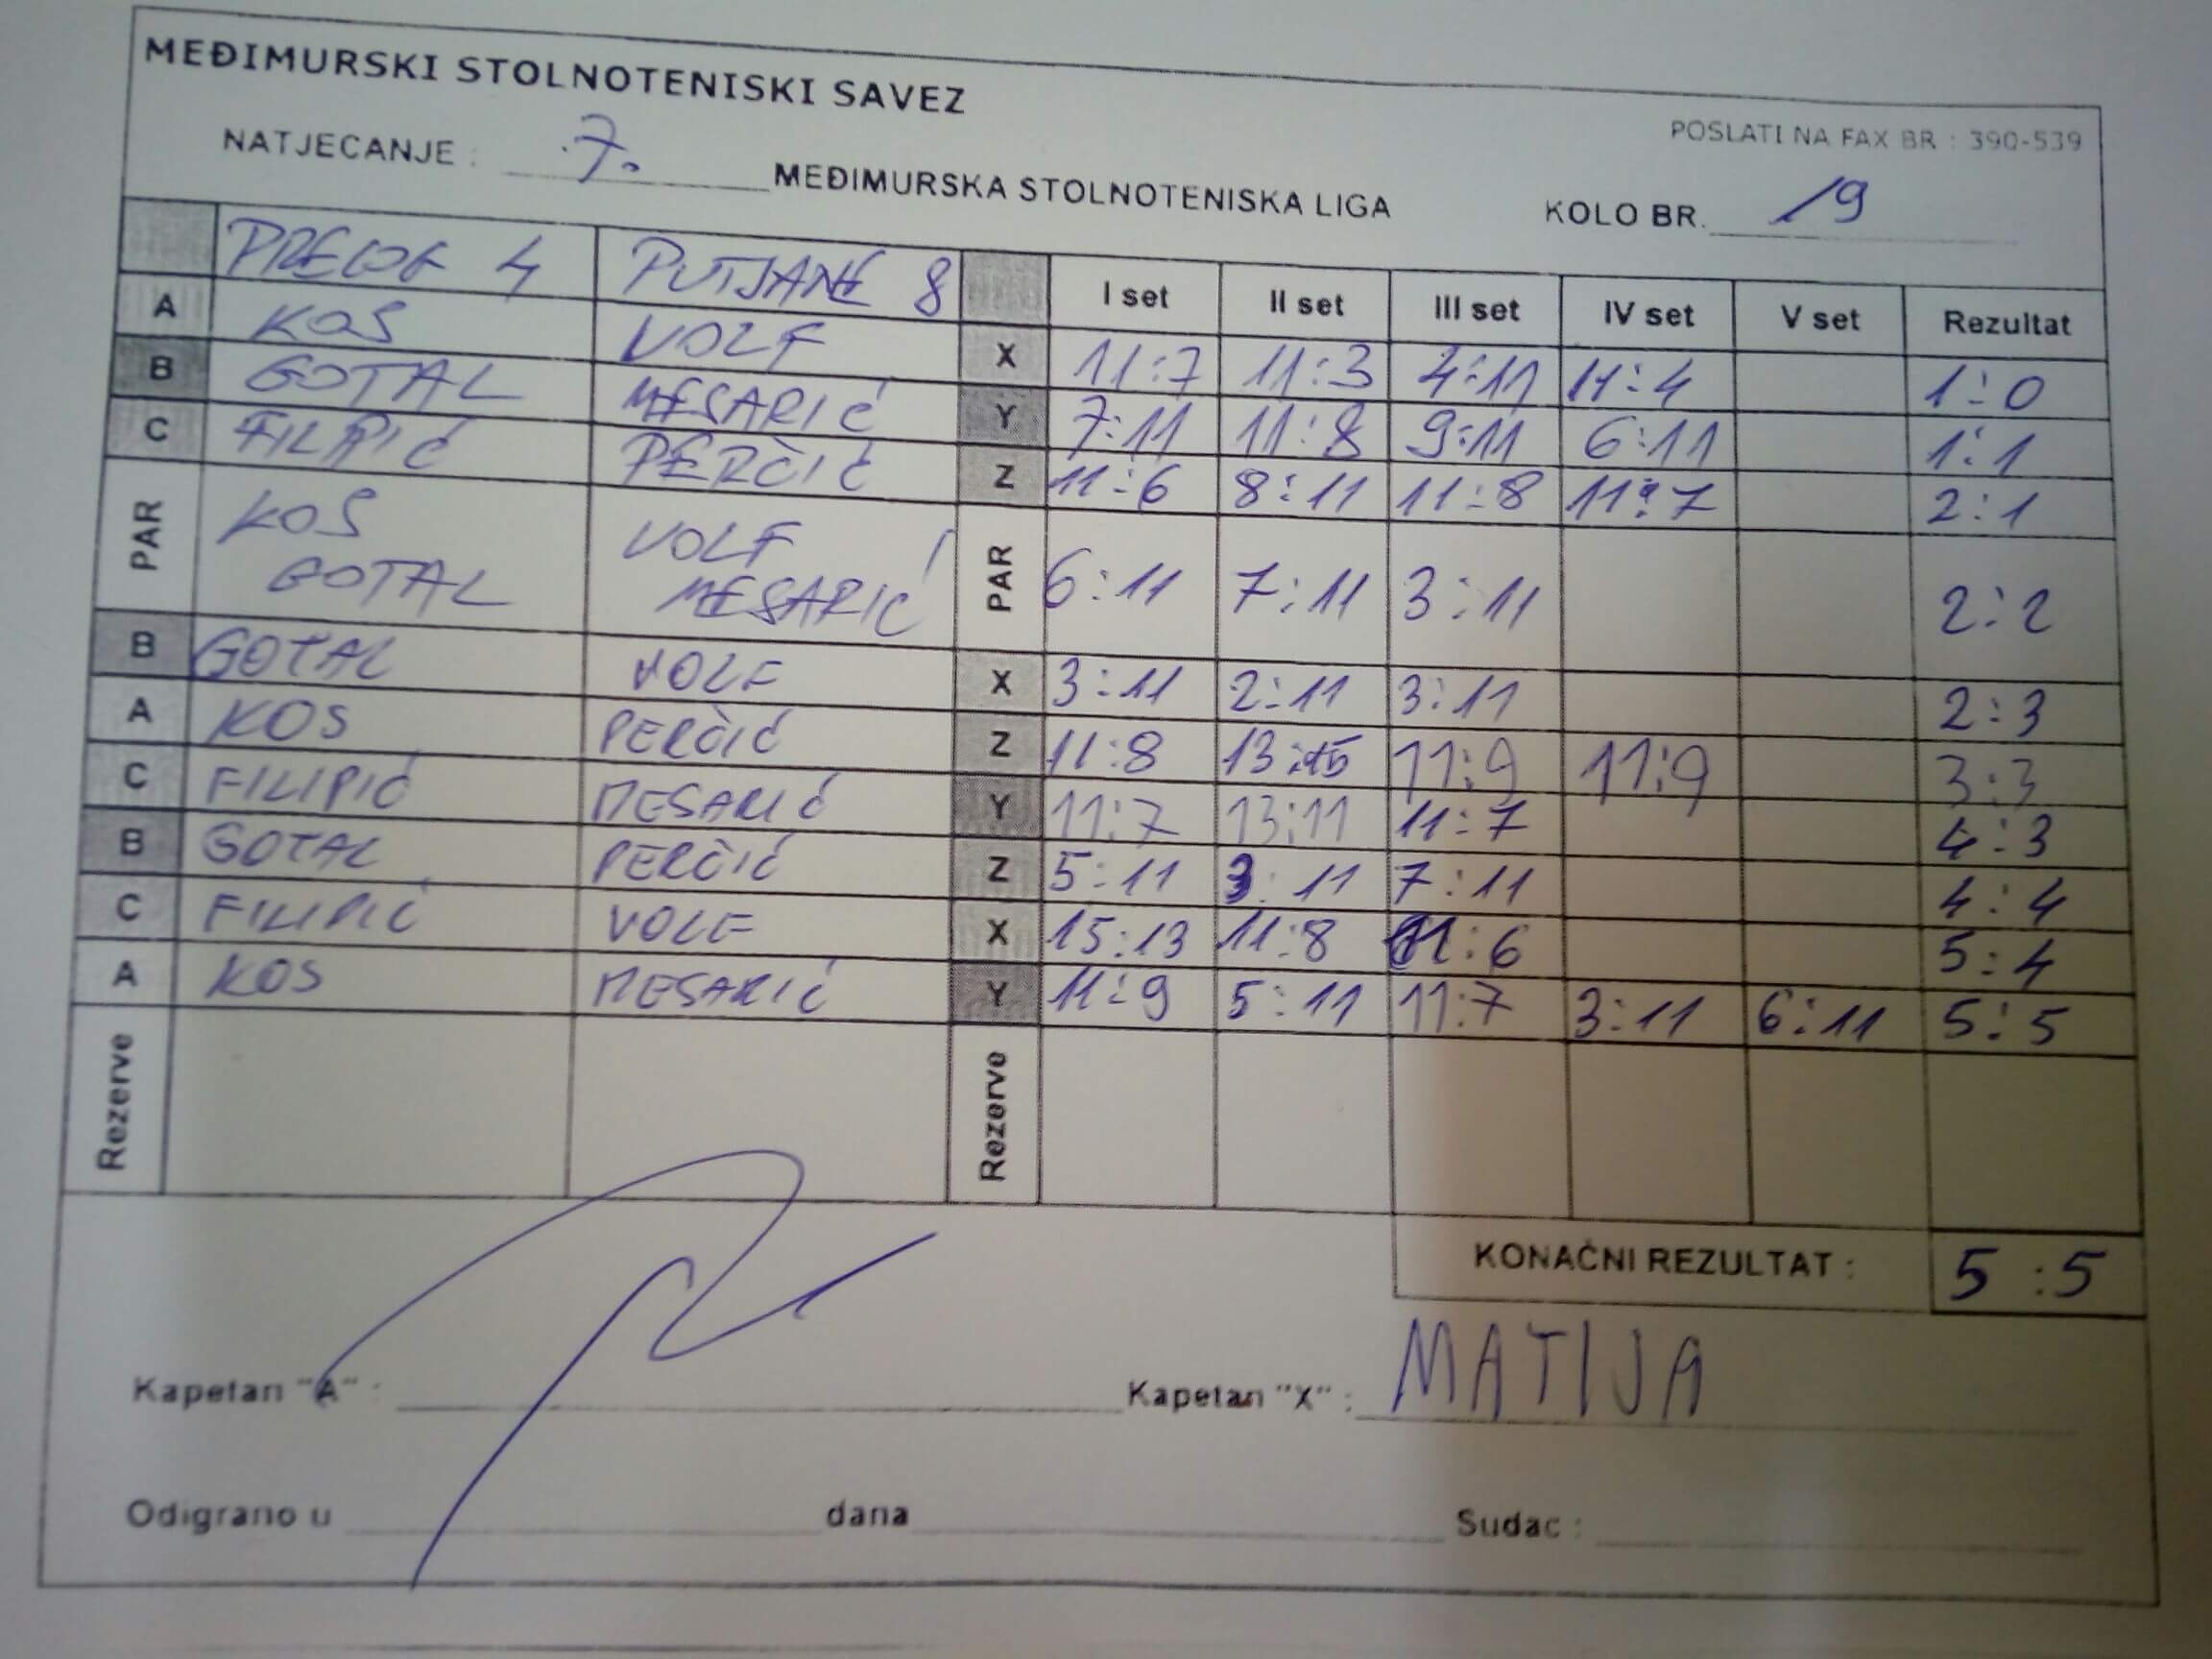 MEĐIMURSKI STOLNOTENISKI SAVEZ
POSLATI NA FAX BR : 390-539
NATJECANJE : 7. MEĐIMURSKA STOLNOTENISKA LIGA KOLO BR. 19
PRELOG 4 PUTJANE 8 I set II set III set IV set V set Rezultat
A KOS VOLF X 11:7 11:3 4:11 11:4 1:0
B GOTAL MESARIĆ Y 7:11 11:8 9:11 6:11 1:1
C FILIPIĆ PERČIĆ Z 11:6 8:11 11:8 11:7 2:1
PAR KOS VOLF PAR 6:11 7:11 3:11 2:2
GOTAL MESARIĆ
B GOTAL VOLF X 3:11 2:11 3:11 2:3
A KOS PERČIĆ Z 11:8 13:15 11:9 11:9 3:3
C FILIPIĆ MESARIĆ Y 11:7 13:11 11:7 4:3
B GOTAL PERČIĆ Z 5:11 3:11 7:11 4:4
C FILIPIĆ VOLF X 15:13 11:8 11:6 5:4
A KOS MESARIĆ Y 11:9 5:11 11:7 3:11 6:11 5:5
Rezerve Rezerve
KONAČNI REZULTAT : 5:5
Kapetan "A" : Kapetan "X" : MATIJA
Odigrano u dana Sudac :